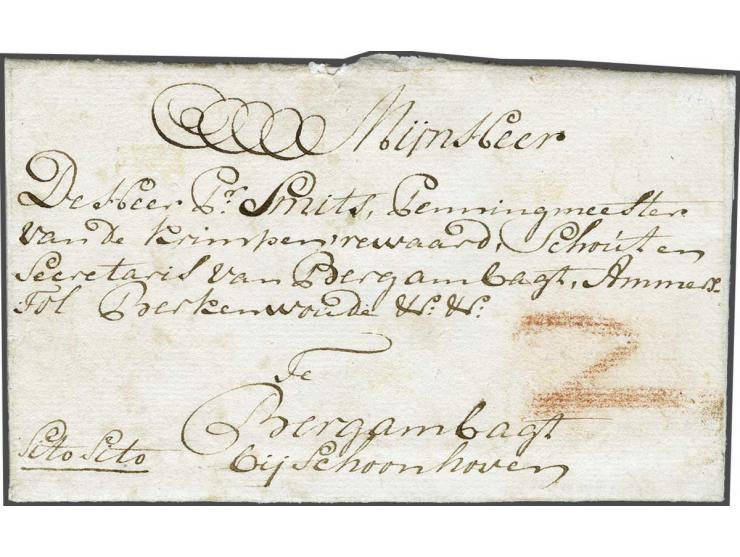 Mijn Heer
De Heer Pr. Smits, Penningmeester
van de Krimpenrewaard, Schout en
Secretaris van Bergambagt, Ammers
Tol Berkenwoude &c. &c.
Te
Bergambagt
bij Schoonhoven
Sito Sito
2